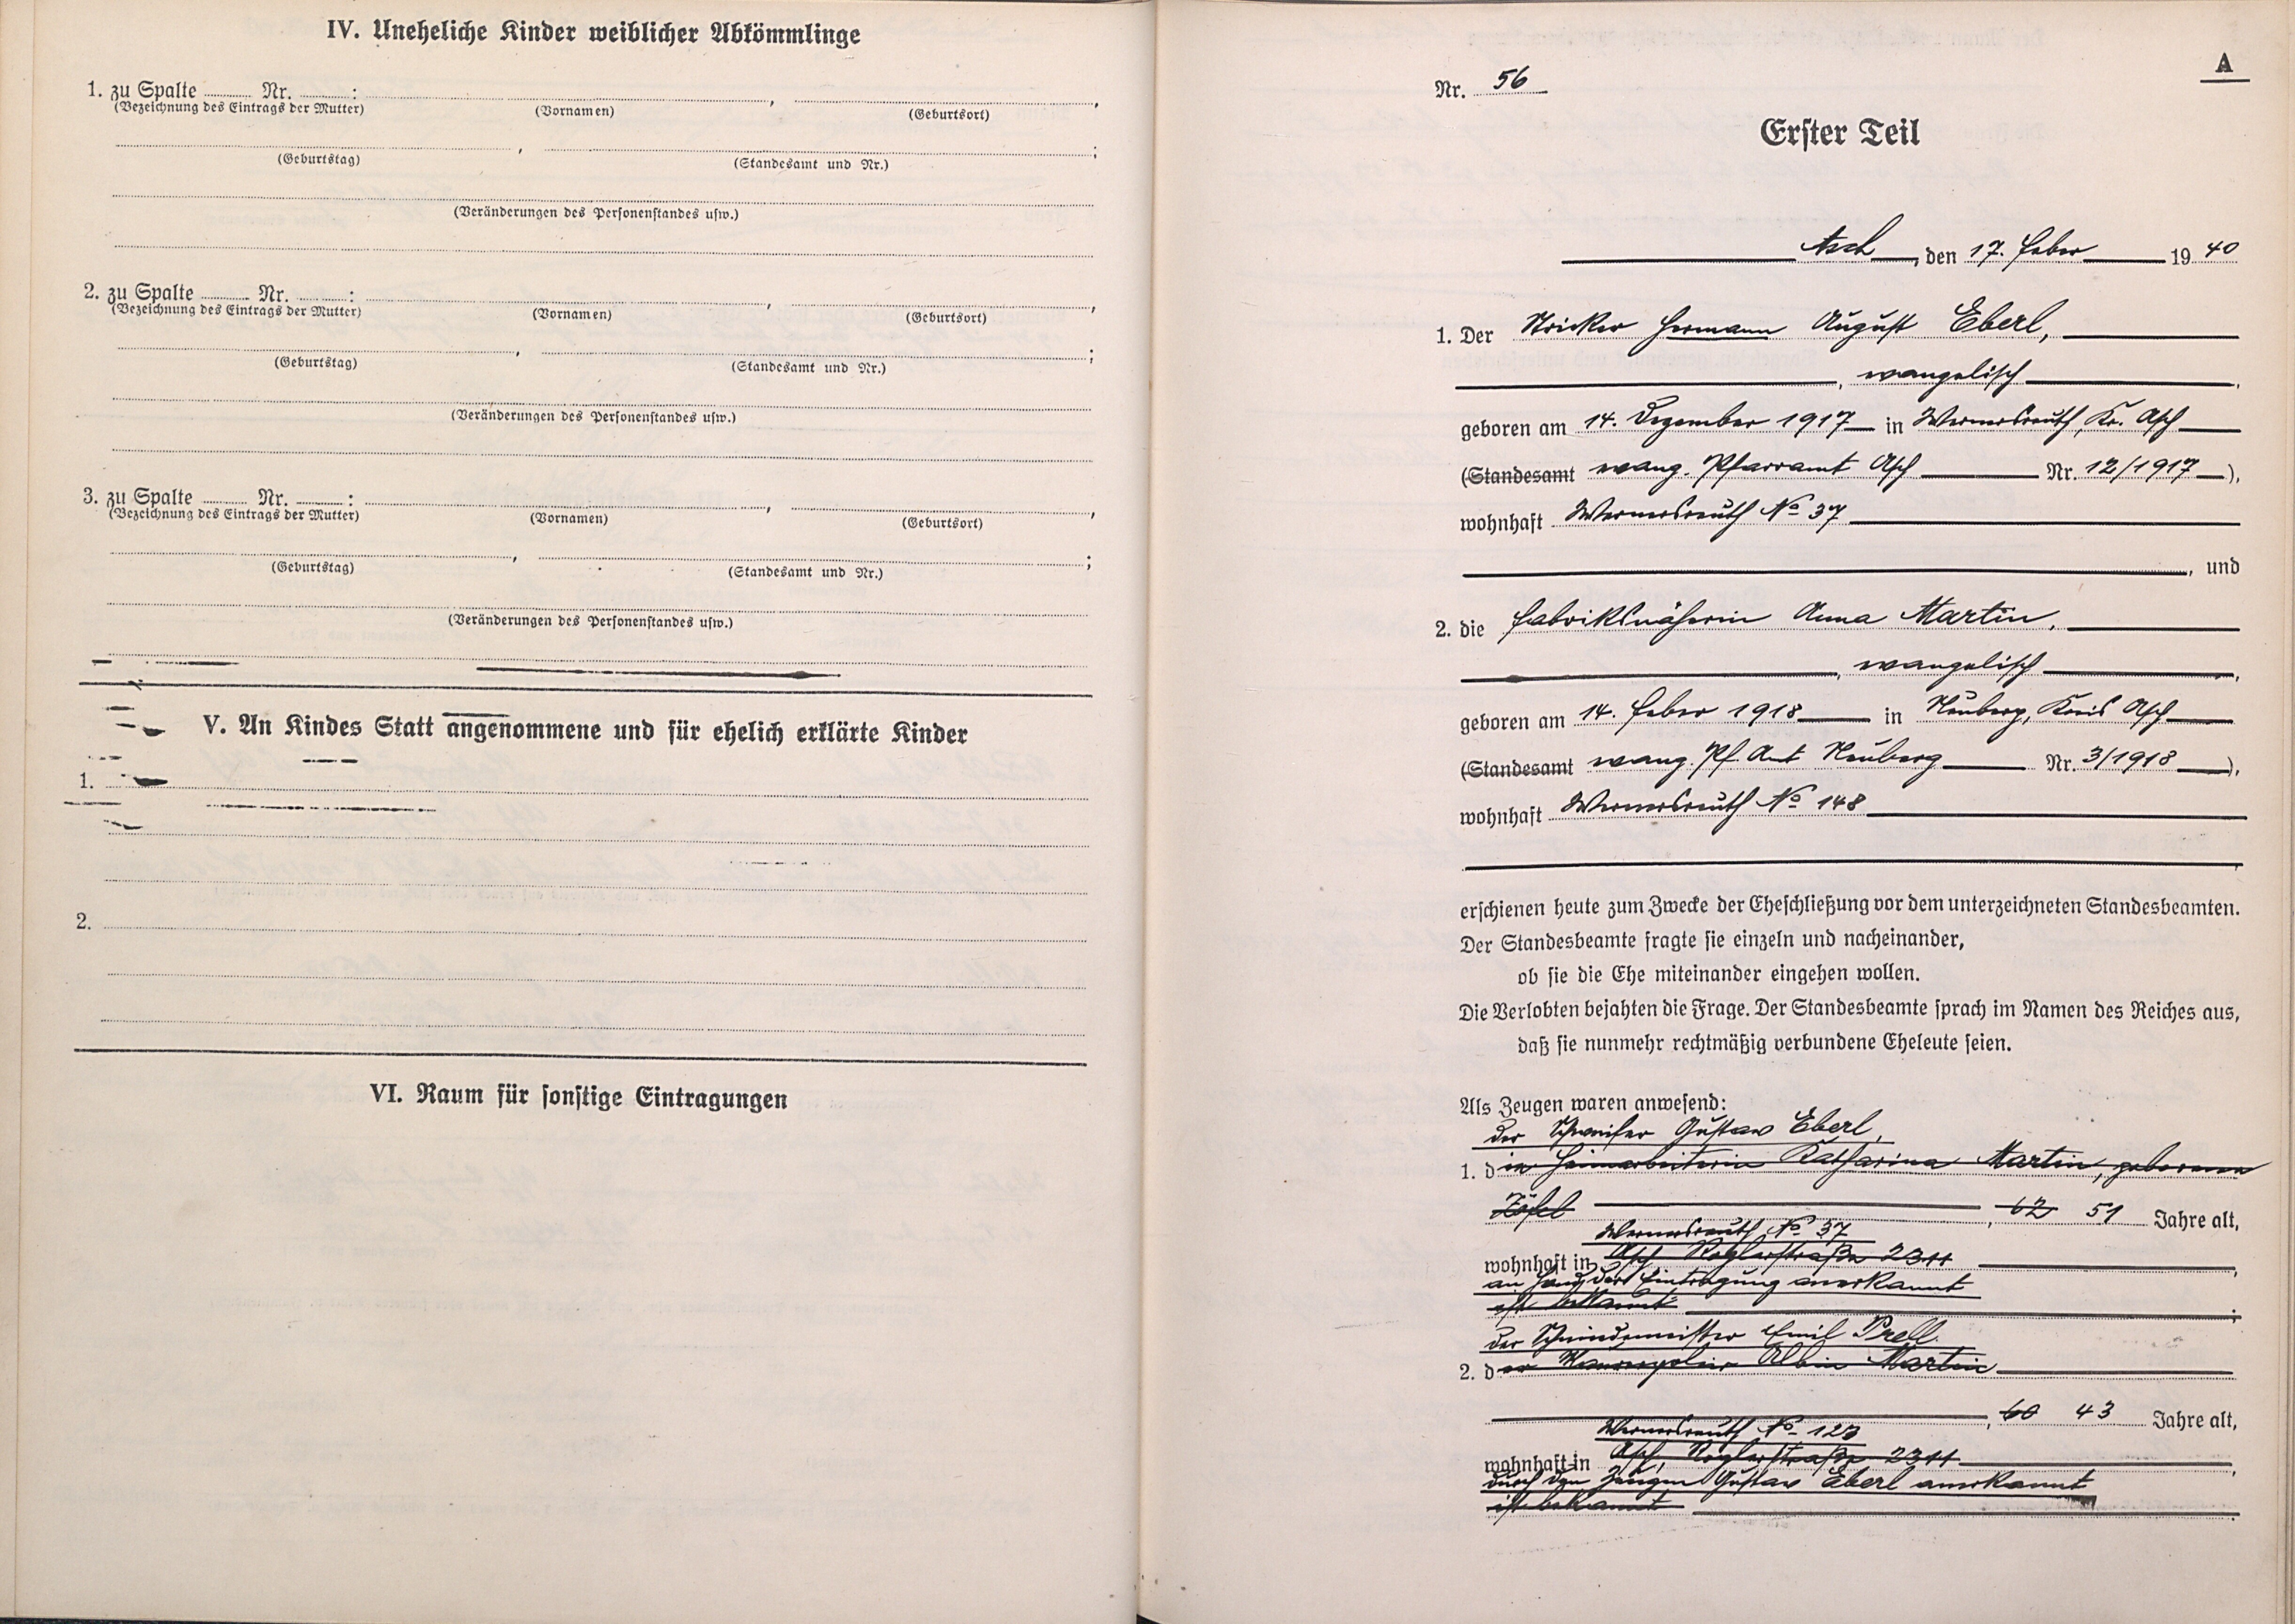 IV. Uneheliche Kinder weiblicher Abkömmlinge
1. zu Spalte ........ Nr. ........:
(Bezeichnung des Eintrags der Mutter) (Vornamen) (Geburtsort)
(Geburtstag) (Standesamt und Nr.)
(Veränderungen des Personenstandes usw.)
2. zu Spalte ........ Nr. ........:
(Bezeichnung des Eintrags der Mutter) (Vornamen) (Geburtsort)
(Geburtstag) (Standesamt und Nr.)
(Veränderungen des Personenstandes usw.)
3. zu Spalte ........ Nr. ........:
(Bezeichnung des Eintrags der Mutter) (Vornamen) (Geburtsort)
(Geburtstag) (Standesamt und Nr.)
(Veränderungen des Personenstandes usw.)
V. An Kindes Statt angenommene und für ehelich erklärte Kinder
1.
2.
VI. Raum für sonstige Eintragungen
A
Nr. 56
Erster Teil
Asch, den 17. Feber 1940
1. Der Stricker Hermann August Eberl,
, evangelisch,
geboren am 14. Dezember 1917 in Wernersreuth, Kr. Asch
(Standesamt evang. Pfarramt Asch Nr. 12/1917),
wohnhaft Wernersreuth No 37
, und
2. die Fabriksnäherin Anna Martin,
, evangelisch,
geboren am 14. Feber 1918 in Neuberg, Kreis Asch
(Standesamt evang. Pf. Amt Neuberg Nr. 3/1918),
wohnhaft Wernersreuth No 148
erschienen heute zum Zwecke der Eheschließung vor dem unterzeichneten Standesbeamten.
Der Standesbeamte fragte sie einzeln und nacheinander,
ob sie die Ehe miteinander eingehen wollen.
Die Verlobten bejahten die Frage. Der Standesbeamte sprach im Namen des Reiches aus,
daß sie nunmehr rechtmäßig verbundene Eheleute seien.
Als Zeugen waren anwesend:
der Schweifer Gustav Eberl,
1. die Heimarbeiterin Katharina Martin, geborene
, 62 51 Jahre alt,
Wernersreuth No 37
wohnhaft in Asch, Roglerstraße 2311
an Hand der Eintragung anerkannt
ist bekannt;
der Schneidermeister Emil Prell
2. der Albin Martin
, 60 43 Jahre alt,
Wernersreuth No 123
wohnhaft in Asch, Roglerstraße 2311
durch den Zeugen Gustav Eberl anerkannt
ist bekannt.